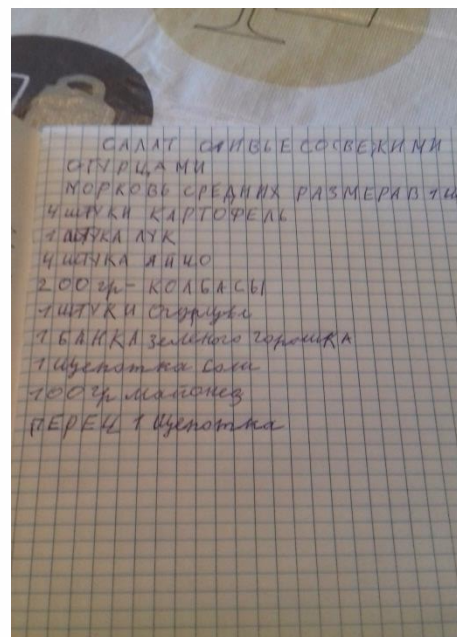 САЛАТ ОЛИВЬЕ СО СВЕЖИМИ
ОГУРЦАМИ
МОРКОВЬ СРЕДНИХ РАЗМЕРАВ 1 Ш
4 ШТУКИ КАРТОФЕЛЬ
1 ШТУКА ЛУК
4 ШТУКА ЯЙЦО
200 гр - КОЛБАСЫ
1 ШТУКИ Огурцы
1 БАНКА зеленого горошка
1 Щепотка Соли
100 гр майонез
ПЕРЕЦ 1 Щепотка